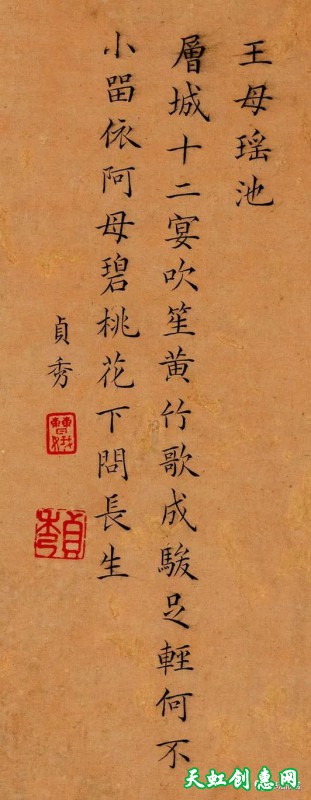 王母瑶池
層城十二宴吹笙黄竹歌成駿足輕何不
小畱依阿母碧桃花下問長生
貞秀
天虹创惠网